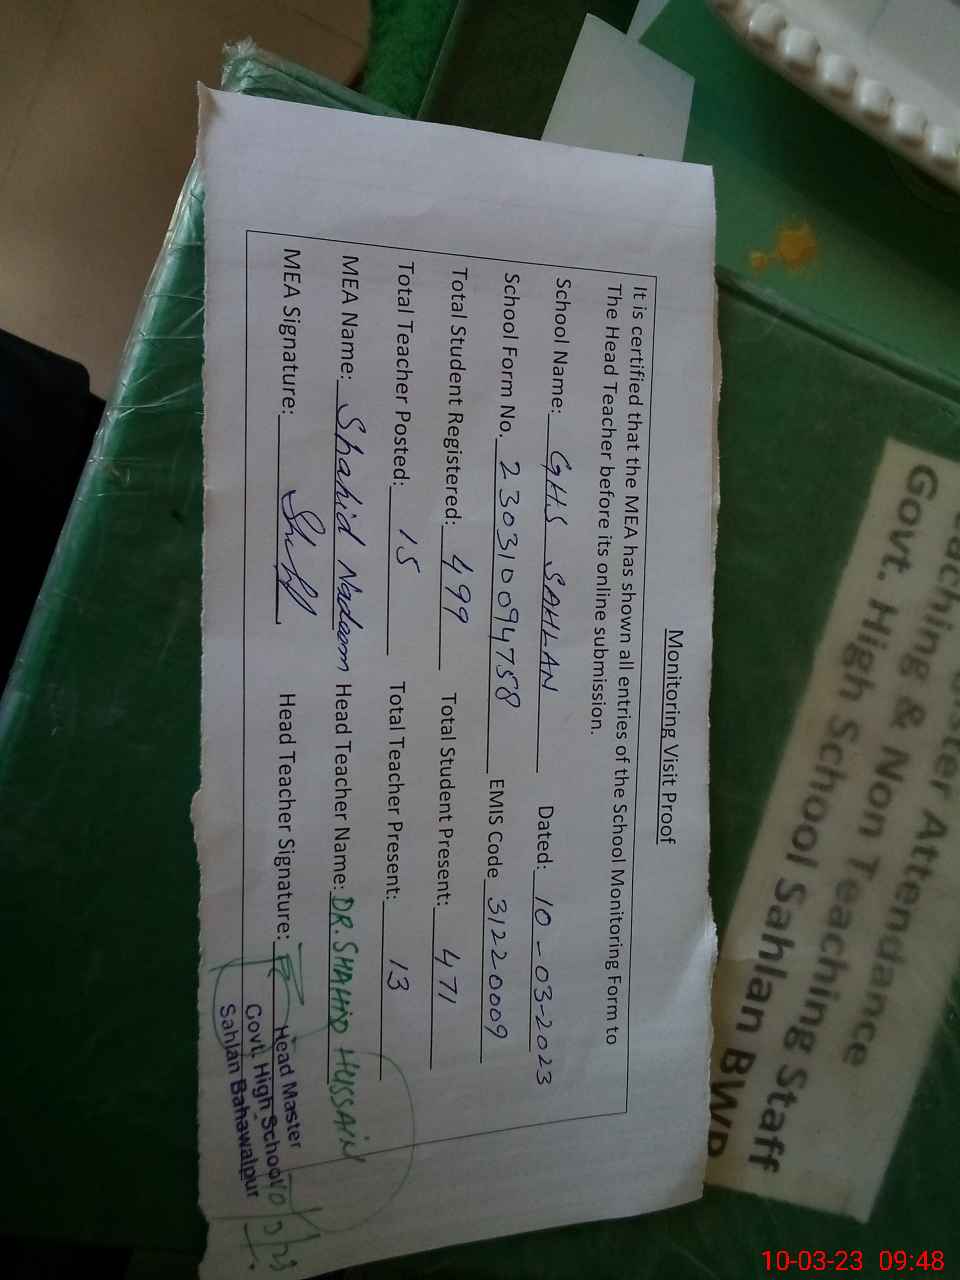 Monitoring Visit Proof
It is certified that the MEA has shown all entries of the School Monitoring Form to
The Head Teacher before its online submission.
School Name: GHS SAHLAN Dated: 10-03-2023
School Form No. 230310094758 EMIS Code 31220009
Total Student Registered: 499 Total Student Present: 471
Total Teacher Posted: 15 Total Teacher Present: 13
MEA Name: Shahid Nadeem Head Teacher Name: DR. SHAHID HUSSAIN
MEA Signature: Head Teacher Signature:
Head Master
Govt. High School
Sahlan Bahawalpur
10/3/23
Attendance
Teaching & Non Teaching Staff
Govt. High School Sahlan BWP
10-03-23 09:48